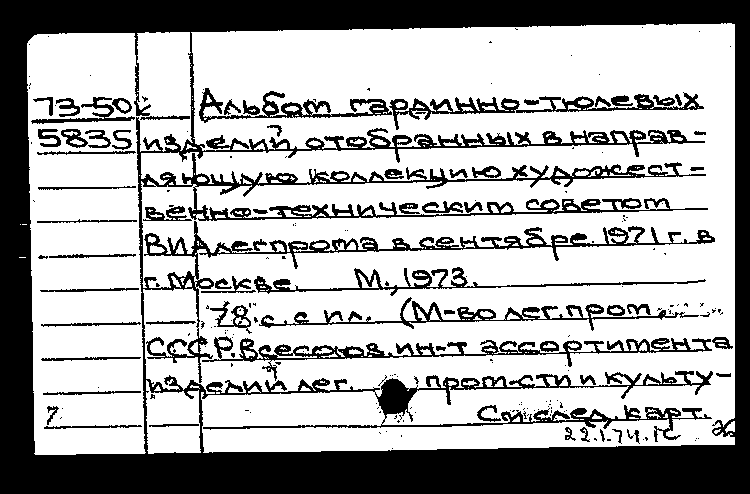 73-50к Альбом гардинно-тюлевых
5835 изделий, отобранных в направ-
ляющую коллекцию художест-
венно-техническим советом
ВИАлегпрома в сентябре 1971 г. в
г. Москве. М., 1973.
78 с. с ил. (М-во лег. пром.
СССР. Всесоюз. ин-т ассортимента
изделий лег. пром-сти и культу-
7 См. след. карт.
22.1.74.